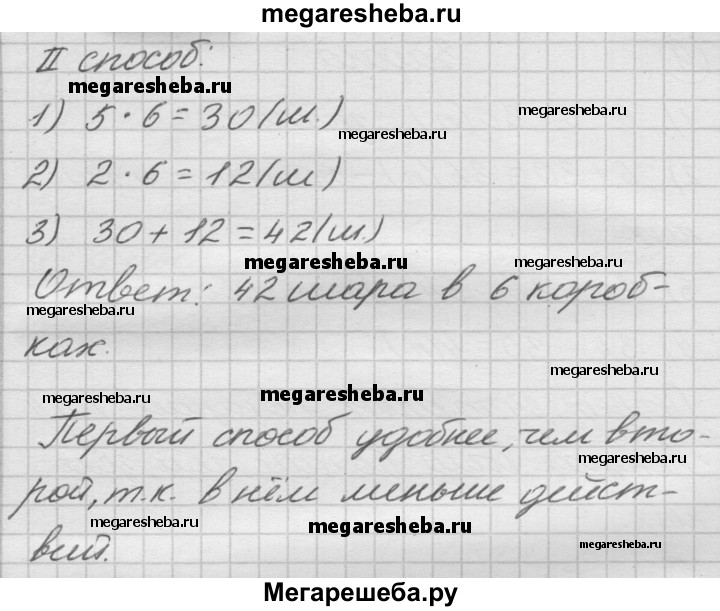 megaresheba.ru
II способ:
megaresheba.ru
1) 5 · 6 = 30 (ш.)
megaresheba.ru
megaresheba.ru
2) 2 · 6 = 12 (ш)
3) 30 + 12 = 42 (ш.)
megaresheba.ru
megaresheba.ru
Ответ: 42 шара в 6 короб-
megaresheba.ru
ках.
megaresheba.ru
megaresheba.ru
Первый способ удобнее, чем вто-
megaresheba.ru
рой, т.к. в нём меньше дейст-
megaresheba.ru
megaresheba.ru
вий.
megaresheba.ru
Мегарешеба.ру